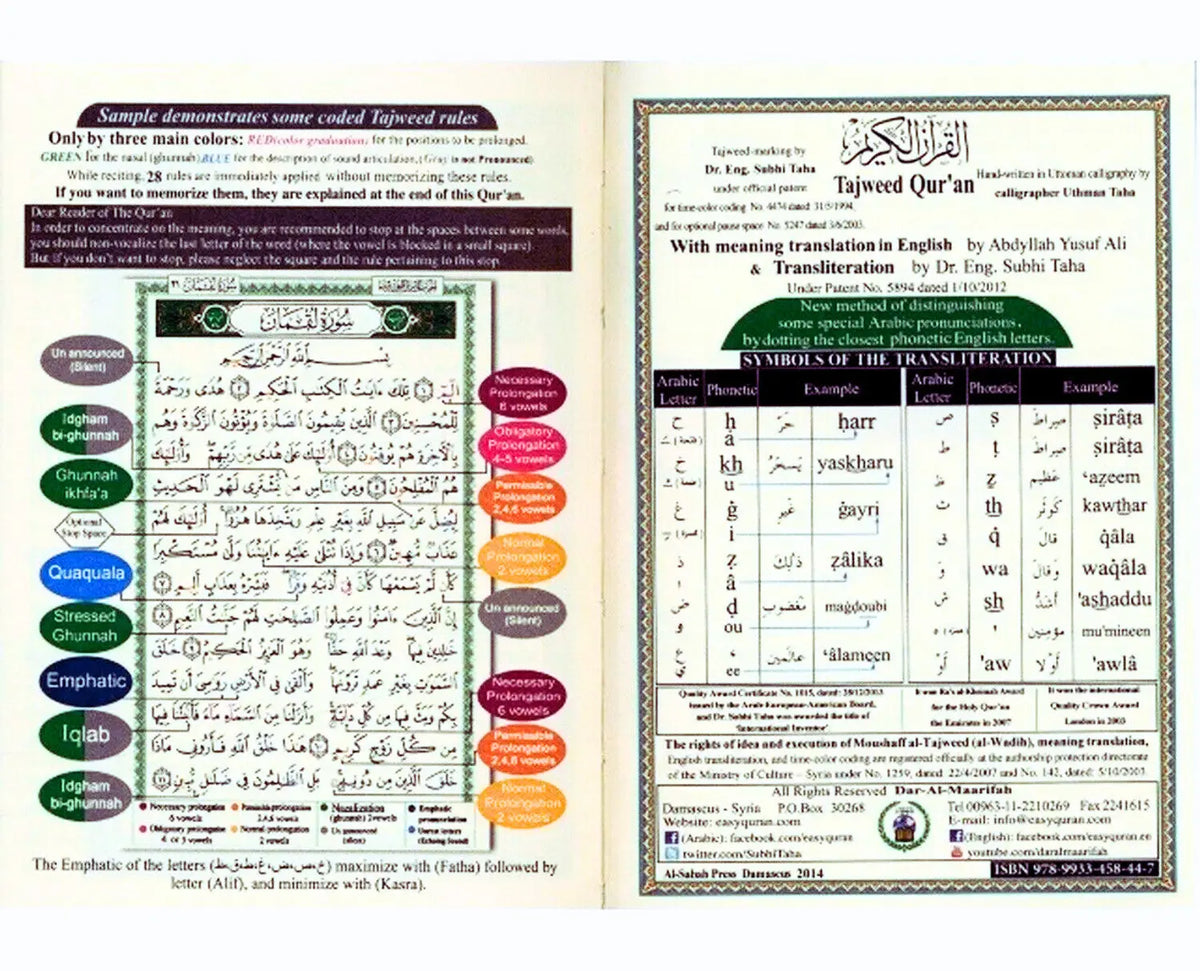 Sample demonstrates some coded Tajweed rules
Only by three main colors: RED(color graduation) for the positions to be prolonged.
GREEN for the nasal (ghunnah),BLUE for the description of sound articulation,(Gray is not Pronounced)
While reciting, 28 rules are immediately applied without memorizing these rules.
If you want to memorize them, they are explained at the end of this Qur'an.
Dear Reader of The Qur'an
In order to concentrate on the meaning, you are recommended to stop at the spaces between some words,
you should non-vocalize the last letter of the word (where the vowel is blocked in a small square).
But if you don't want to stop, please neglect the square and the rule pertaining to this stop.
سورة لقمان
سُورَةُ لُقْمَان
بِسْمِ اللَّهِ الرَّحْمَٰنِ الرَّحِيمِ
الٓمٓ ١ تِلْكَ ءَايَٰتُ الْكِتَٰبِ الْحَكِيمِ ٢ هُدًى وَرَحْمَةً
لِّلْمُحْسِنِينَ ٣ الَّذِينَ يُقِيمُونَ الصَّلَوٰةَ وَيُؤْتُونَ الزَّكَوٰةَ وَهُم
بِالْأَخِرَةِ هُمْ يُوقِنُونَ ٤ أُوْلَٰٓئِكَ عَلَىٰ هُدًى مِّن رَّبِّهِمْ وَأُوْلَٰٓئِكَ
هُمُ الْمُفْلِحُونَ ٥ وَمِنَ النَّاسِ مَن يَشْتَرِى لَهْوَ الْحَدِيثِ
لِيُضِلَّ عَن سَبِيلِ اللَّهِ بِغَيْرِ عِلْمٍ وَيَتَّخِذَهَا هُزُوًا أُوْلَٰٓئِكَ لَهُمْ
عَذَابٌ مُّهِينٌ ٦ وَإِذَا تُتْلَىٰ عَلَيْهِ ءَايَٰتُنَا وَلَّىٰ مُسْتَكْبِرًا
كَأَن لَّمْ يَسْمَعْهَا كَأَنَّ فِىٓ أُذُنَيْهِ وَقْرًا فَبَشِّرْهُ بِعَذَابٍ أَلِيمٍ ٧
إِنَّ الَّذِينَ ءَامَنُوا وَعَمِلُوا الصَّٰلِحَٰتِ لَهُمْ جَنَّٰتُ النَّعِيمِ ٨
خَٰلِدِينَ فِيهَا وَعْدَ اللَّهِ حَقًّا وَهُوَ الْعَزِيزُ الْحَكِيمُ ٩ خَلَقَ
السَّمَٰوَٰتِ بِغَيْرِ عَمَدٍ تَرَوْنَهَا وَأَلْقَىٰ فِى الْأَرْضِ رَوَٰسِىَ أَن تَمِيدَ
بِكُمْ وَبَثَّ فِيهَا مِن كُلِّ دَآبَّةٍ وَأَنزَلْنَا مِنَ السَّمَآءِ مَآءً فَأَنۢبَتْنَا فِيهَا
مِن كُلِّ زَوْجٍ كَرِيمٍ ١٠ هَٰذَا خَلْقُ اللَّهِ فَأَرُونِى مَاذَا
خَلَقَ الَّذِينَ مِن دُونِهِ بَلِ الظَّٰلِمُونَ فِى ضَلَٰلٍ مُّبِينٍ ١١
Un announced
(Silent)
Idgham
bi-ghunnah
Ghunnah
ikhfa'a
Optional
Stop Space
Quaquala
Stressed
Ghunnah
Emphatic
Iqlab
Idgham
bi-ghunnah
Necessary
Prolongation
6 vowels
Obligatory
Prolongation
4-5 vowels
Permissable
Prolongation
2,4,6 vowels
Normal
Prolongation
2 vowels
Un announced
(Silent)
Necessary
Prolongation
6 vowels
Permissable
Prolongation
2,4,6 vowels
Normal
Prolongation
2 vowels
Necessary prolongation
6 vowels
Permissible prolongation
2,4,6 vowels
Nazalization
(ghunnah) 2 vowels
Emphatic
pronounciation
Obligatory prolongation
4 or 5 vowels
Normal prolongation
2 vowels
Un announced
(silent)
(Echoing Sound)
The Emphatic of the letters (خ،ص،ض،غ،ط،ق،ظ) maximize with (Fatha) followed by
letter (Alif), and minimize with (Kasra).
القرآن الكريم
Tajweed Qur'an
Tajweed-marking by
Dr. Eng. Subhi Taha
under official patent
for time-color coding No. 4474 dated 31/5/1994,
and for optional pause space No. 5247 dated 3/6/2003.
Hand-written in Uthman calligraphy by
calligrapher Uthman Taha
With meaning translation in English by Abdyllah Yusuf Ali
& Transliteration by Dr. Eng. Subhi Taha
Under Patent No. 5894 dated 1/10/2012
New method of distinguishing
some special Arabic pronunciations,
by dotting the closest phonetic English letters.
SYMBOLS OF THE TRANSLITERATION
Arabic Letter Phonetic Example Arabic Letter Phonetic Example
ح ḥ حَرّ ḥarr ص ṣ صِراط ṣirâṭa
(فتحة) a ط ṭ صِراط ṣirâṭa
خ kh يَسْخَرُ yaskharu ظ ẓ عَظِيم ‘aẓeem
u ث th كَوْثَر kawthar
غ ġ غَيْرِ ġayri ق q̇ قالَ q̇âla
(كسرة) i وَ wa وَقالَ waq̇âla
ذ ż ذَلِكَ żâlika ش sh أَشَدُّ 'ashaddu
ا â (همزة) ء ' مؤمنين mu'mineen
ض ḍ مَغضوب maġḍoubi أَوْ 'aw أَوْلا 'awlâ
و ou
ع ‘ عالَمين ‘âlameen
ي ee
Quality Award Certificate No. 1015, dated: 28/12/2003
issued by the Arab European-American Board,
and Dr. Subhi Taha was awarded the title of
'International Inventor'
It won Ra's al-Khaimah Award
for the Holy Qur'an
the Emirates in 2007
It won the international
Quality Crown Award
London in 2003
The rights of idea and execution of Moushaff al-Tajweed (al-Wadih), meaning translation,
English transliteration, and time-color coding are registered officially at the authorship protection directorate
of the Ministry of Culture – Syria under No. 1259, dated 22/4/2007 and No. 142, dated: 5/10/2003.
All Rights Reserved Dar-Al-Maarifah
Damascus - Syria P.O.Box 30268
Website: easyquran.com
(Arabic): facebook.com/easyquran
twitter.com/SubhiTaha
Tel 00963-11-2210269 Fax 2241615
E-mail: info@easyquran.com
(English): facebook.com/easyquran.en
youtube.com/daralmaarifah
Al-Sabah Press Damascus 2014
ISBN 978-9933-458-44-7